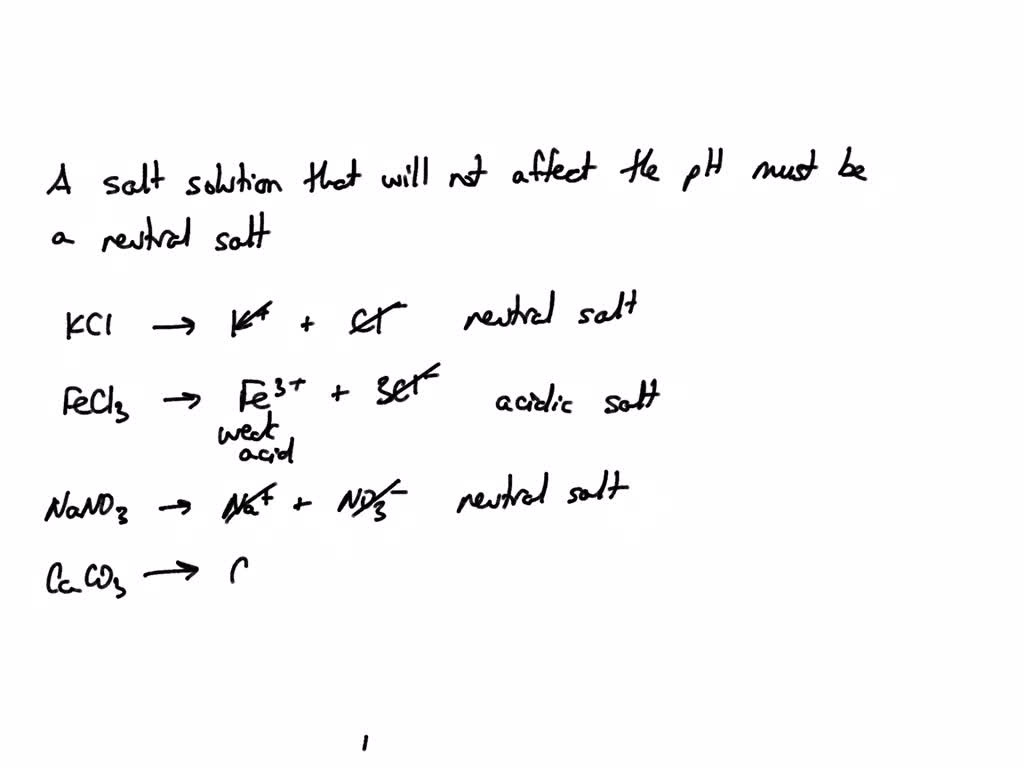 A salt solution that will not affect the pH must be
a neutral salt
KCl → K⁺ + Cl⁻ neutral salt
FeCl₃ → Fe³⁺ + 3Cl⁻ acidic salt
weak
acid
NaNO₃ → Na⁺ + NO₃⁻ neutral salt
CaCO₃ → C